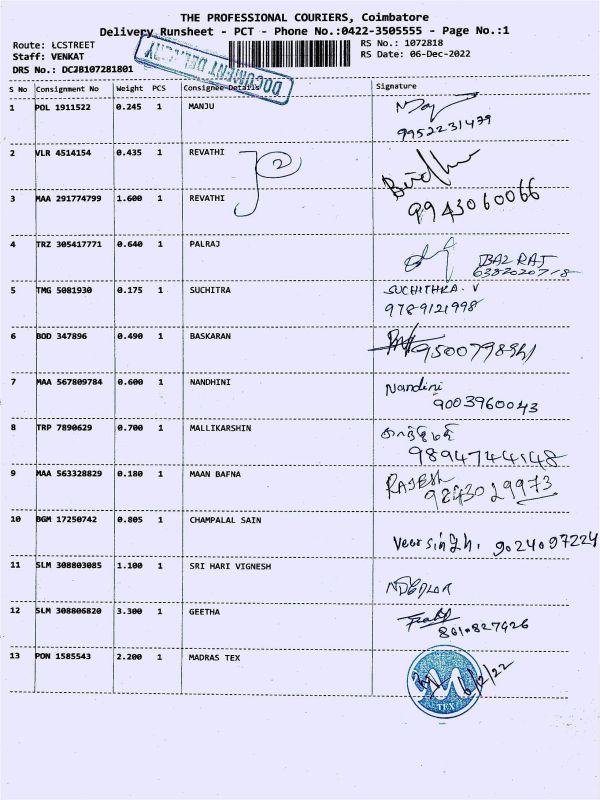 THE PROFESSIONAL COURIERS, Coimbatore
Delivery Runsheet - PCT - Phone No.:0422-3505555 - Page No.:1
Route: LCSTREET RS No.: 1072818
Staff: VENKAT RS Date: 06-Dec-2022
DRS No.: DCJB107281801
DOCUMENT DELIVERY
S No Consignment No Weight PCS Consignee Details Signature
1 POL 1911522 0.245 1 MANJU
9952231479
2 VLR 4514154 0.435 1 REVATHI 2
3 MAA 291774799 1.600 1 REVATHI
9943060066
4 TRZ 305417771 0.640 1 PALRAJ
BALRAJ
5 TMG 5081930 0.175 1 SUCHITRA SUCHITHRA. V
9789121998
6 BOD 347896 0.490 1 BASKARAN
7 MAA 567809784 0.600 1 NANDHINI Nandini
9003960043
8 TRP 7890629 0.700 1 MALLIKARSHIN
9894744148
9 MAA 563328829 0.180 1 MAAN BAFNA RAJESH
9243029973
10 BGM 17250742 0.805 1 CHAMPALAL SAIN
Veersingh. 9024097224
11 SLM 308803085 1.100 1 SRI HARI VIGNESH
12 SLM 308806820 3.300 1 GEETHA
8610827426
13 PON 1585543 2.200 1 MADRAS TEX
6/12/22
TEX